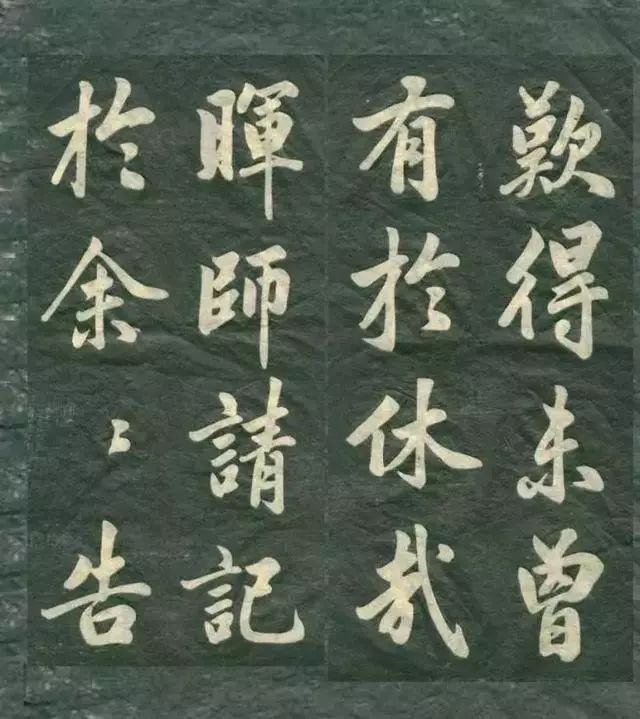 歎得未曾
有於休哉
暉師請記
於余〻告